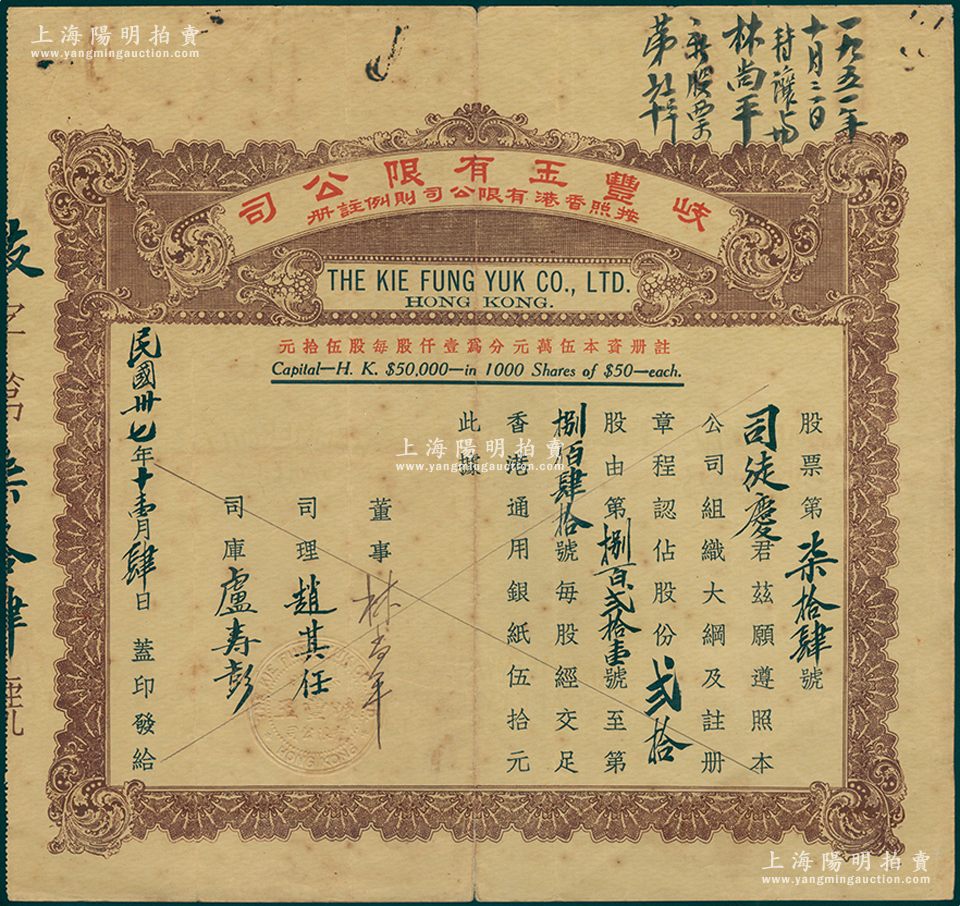 上海陽明拍賣
www.yangmingauction.com
一九五一年
十月三日
轉讓与
林尚平
新股票
第
岐豐玉有限公司
按照香港有限公司則例註册
THE KIE FUNG YUK CO., LTD.
HONG KONG.
註册資本伍萬元分爲壹仟股每股伍拾元
Capital—H. K. $50,000—in 1000 Shares of $50—each.
股票第柒拾肆號
司徒慶君茲願遵照本
公司組織大綱及註册
章程認佔股份弍拾
股由第捌百弍拾壹號至第
捌百肆拾號每股經交足
香港通用銀紙伍拾元
此據
董事
司理趙其任
司庫盧寿彭
民國卅七年十壹月肆日蓋印發給
HONG KONG
上海陽明拍賣
www.yangmingauction.com
上海陽明拍賣
www.yangmingauction.com